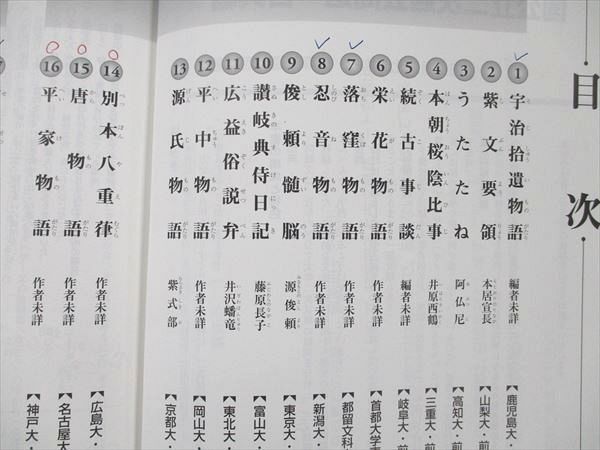 目次
1 宇治拾遺物語 編者未詳 【鹿児島大・
2 紫文要領 本居宣長 【山梨大・前
3 うたたね 阿仏尼 【高知大・前
4 本朝桜陰比事 井原西鶴 【三重大・前
5 続古事談 編者未詳 【岐阜大・前
6 栄花物語 作者未詳 【首都大学東
7 落窪物語 作者未詳 【都留文科大
8 忍音物語 作者未詳 【新潟大・
9 俊頼髄脳 源俊頼 【東京大・
10 讃岐典侍日記 藤原長子 【富山大・
11 広益俗説弁 井沢蟠竜 【東北大・
12 平中物語 作者未詳 【岡山大・
13 源氏物語 紫式部 【京都大・
14 別本八重葎 作者未詳 【広島大・
15 唐物語 作者未詳 【名古屋大
16 平家物語 作者未詳 【神戸大・